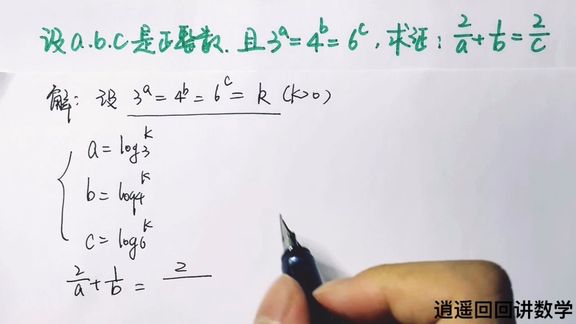 设a.b.c是正整数.且3ᵃ=4ᵇ=6ᶜ,求证:2/a+1/b=2/c
解:设 3ᵃ=4ᵇ=6ᶜ=k (k>0)
a=log₃ᵏ
b=log₄ᵏ
c=log₆ᵏ
2/a+1/b=2/
逍遥回回讲数学